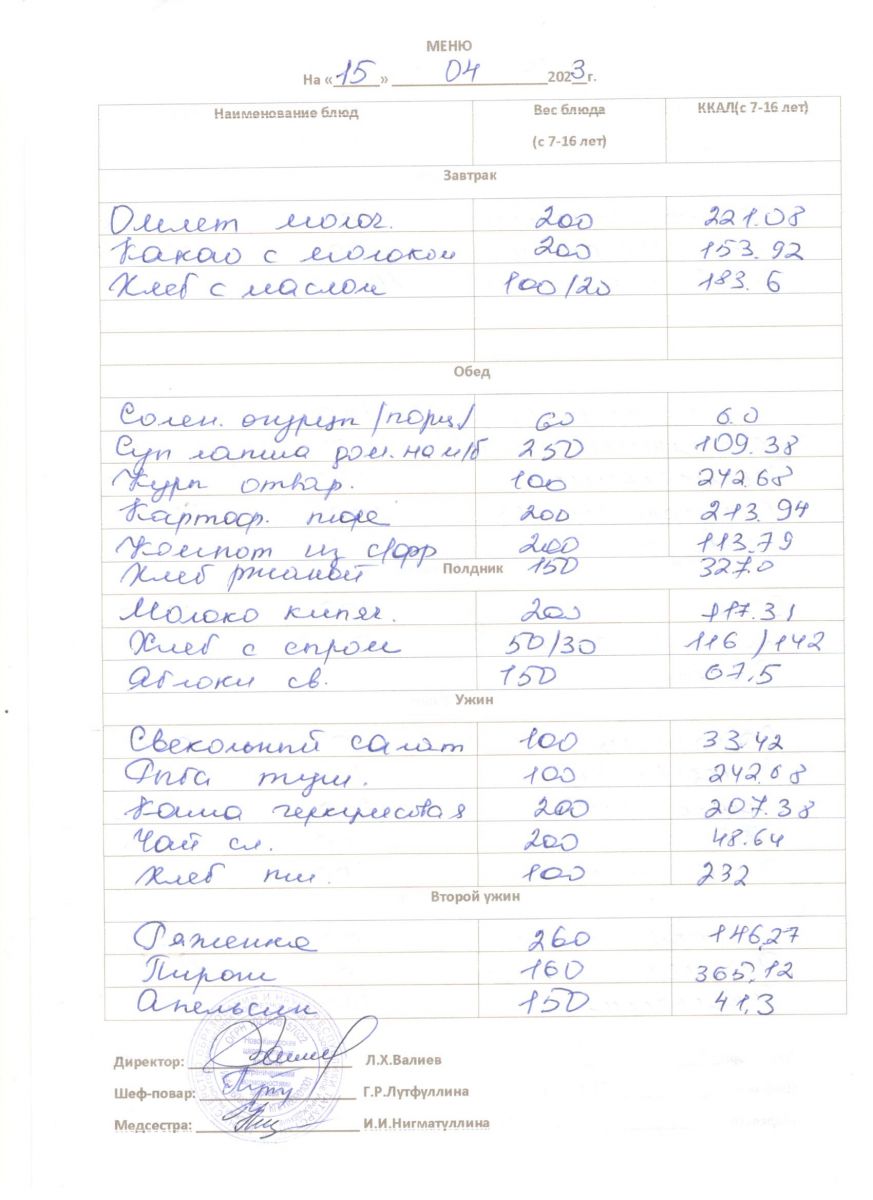 МЕНЮ
На «15» 04 2023г.
Наименование блюд Вес блюда (с 7-16 лет) ККАЛ(с 7-16 лет)
Завтрак
Омлет молоч. 200 221.08
Какао с молоком 200 153.92
Хлеб с маслом 100/20 183.6
Обед
Солен. огурцы /порц/ 60 6.0
Суп лапша дом. на м/б 250 109.38
Куры отвар. 100 242.68
Картоф. пюре 200 213.94
Компот из с/фр 200 113.79
Хлеб ржаной 150 327.0
Полдник
Молоко кипяч. 200 117.31
Хлеб с сыром 50/30 116/142
Яблоки св. 150 67,5
Ужин
Свекольный салат 100 33.42
Рыба туш. 100 242.68
Каша геркулесовая 200 207.38
Чай сл. 200 48.64
Хлеб пш. 100 232
Второй ужин
Ряженка 260 146,27
Пирог 160 365,12
Апельсин 150 41,3
Директор: Л.Х.Валиев
Шеф-повар: Г.Р.Лутфуллина
Медсестра: И.И.Нигматуллина